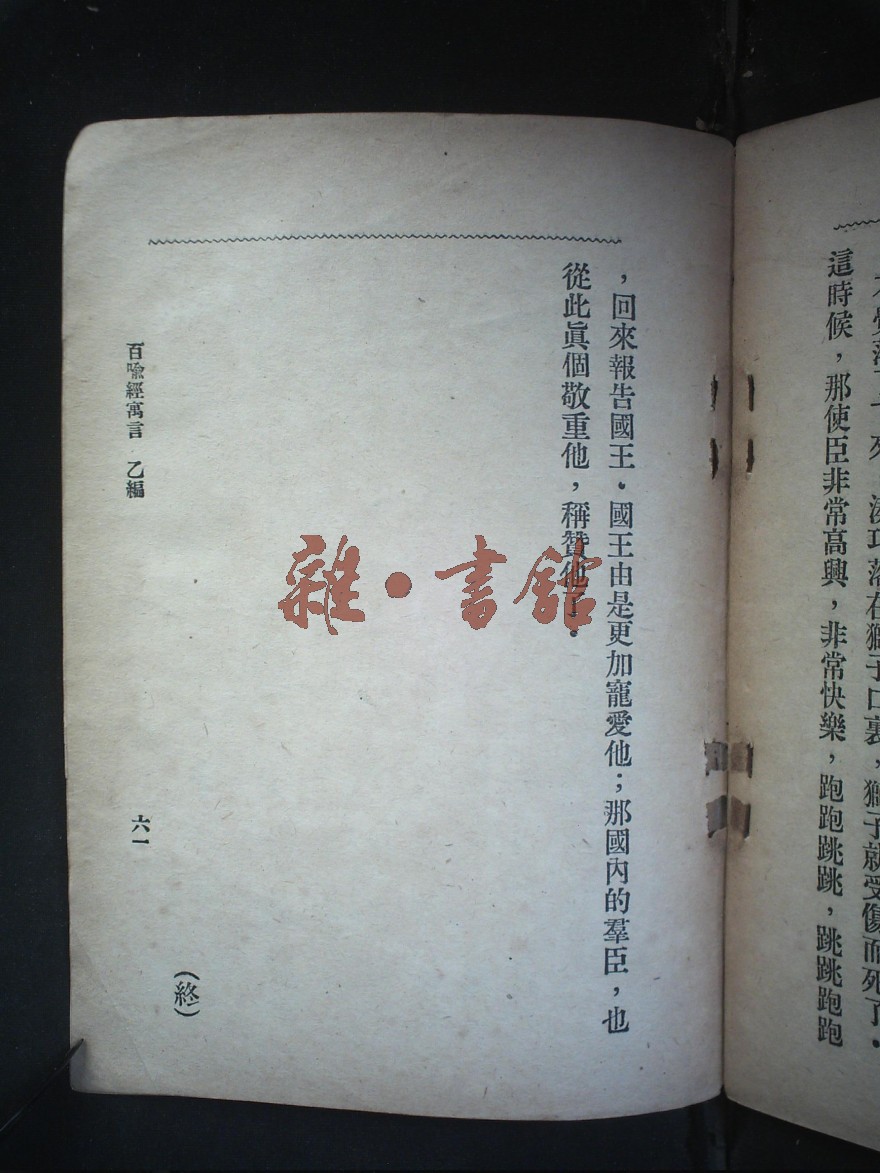 覺落在獅子口裏，獅子就受傷而死了．
這時候，那使臣非常高興，非常快樂，跑跑跳跳，跳跳跑跑
，回來報告國王．國王由是更加寵愛他；那國內的羣臣，也
從此眞個敬重他，稱贊他了．
（終）
百喩經寓言　乙編
六一
雜・書館